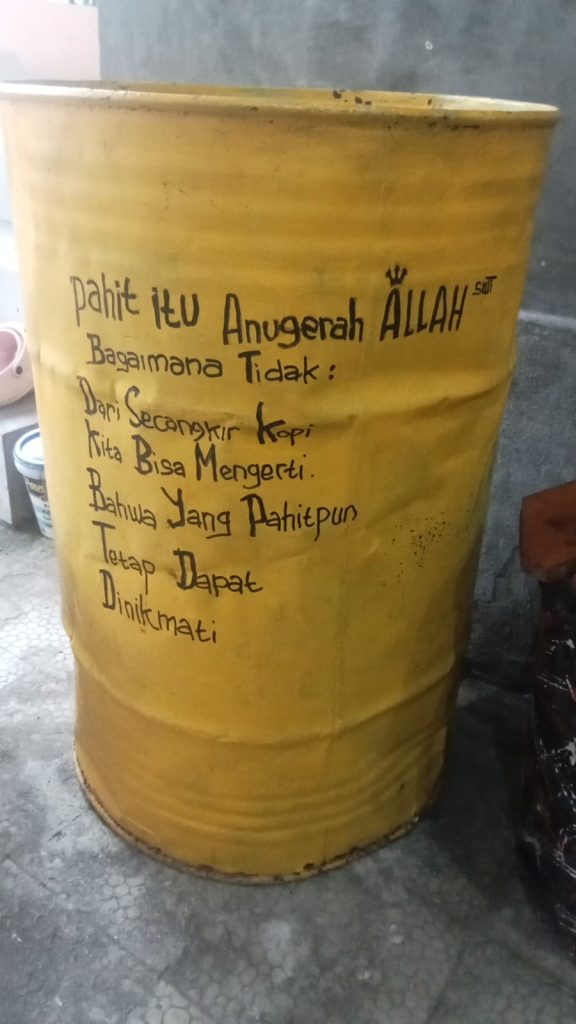 Pahit itu Anugerah ALLAH SWT
Bagaimana Tidak :
Dari Secangkir Kopi
Kita Bisa Mengerti.
Bahwa Yang Pahitpun
Tetap Dapat
Dinikmati